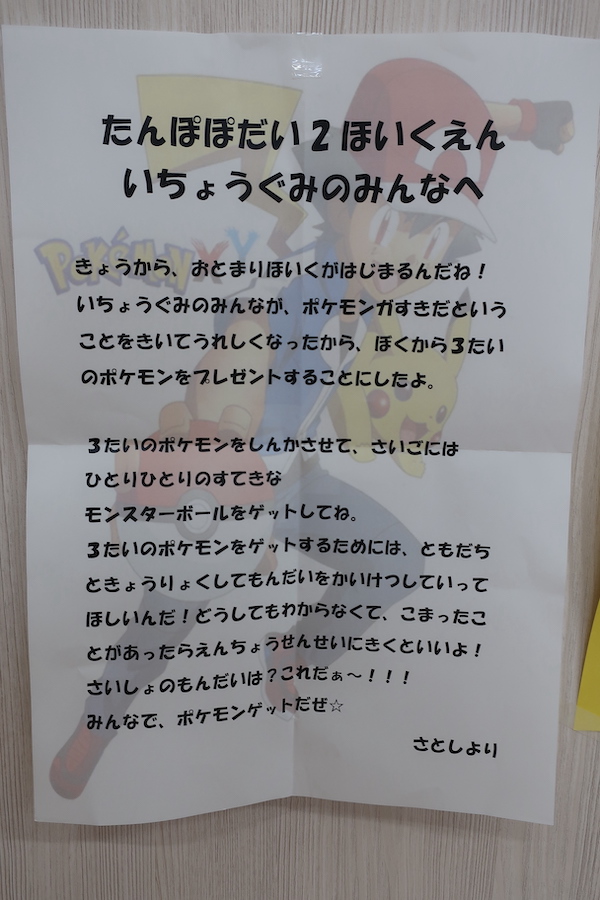 たんぽぽだい2ほいくえん
いちょうぐみのみんなへ
PokémonXY
きょうから、おとまりほいくがはじまるんだね！
いちょうぐみのみんなが、ポケモンガすきだという
ことをきいてうれしくなったから、ぼくから3たい
のポケモンをプレゼントすることにしたよ。
3たいのポケモンをしんかさせて、さいごには
ひとりひとりのすてきな
モンスターボールをゲットしてね。
3たいのポケモンをゲットするためには、ともだち
ときょうりょくしてもんだいをかいけつしていって
ほしいんだ！どうしてもわからなくて、こまったこ
とがあったらえんちょうせんせいにきくといいよ！
さいしょのもんだいは？これだぁ〜！！！
みんなで、ポケモンゲットだぜ☆
さとしより